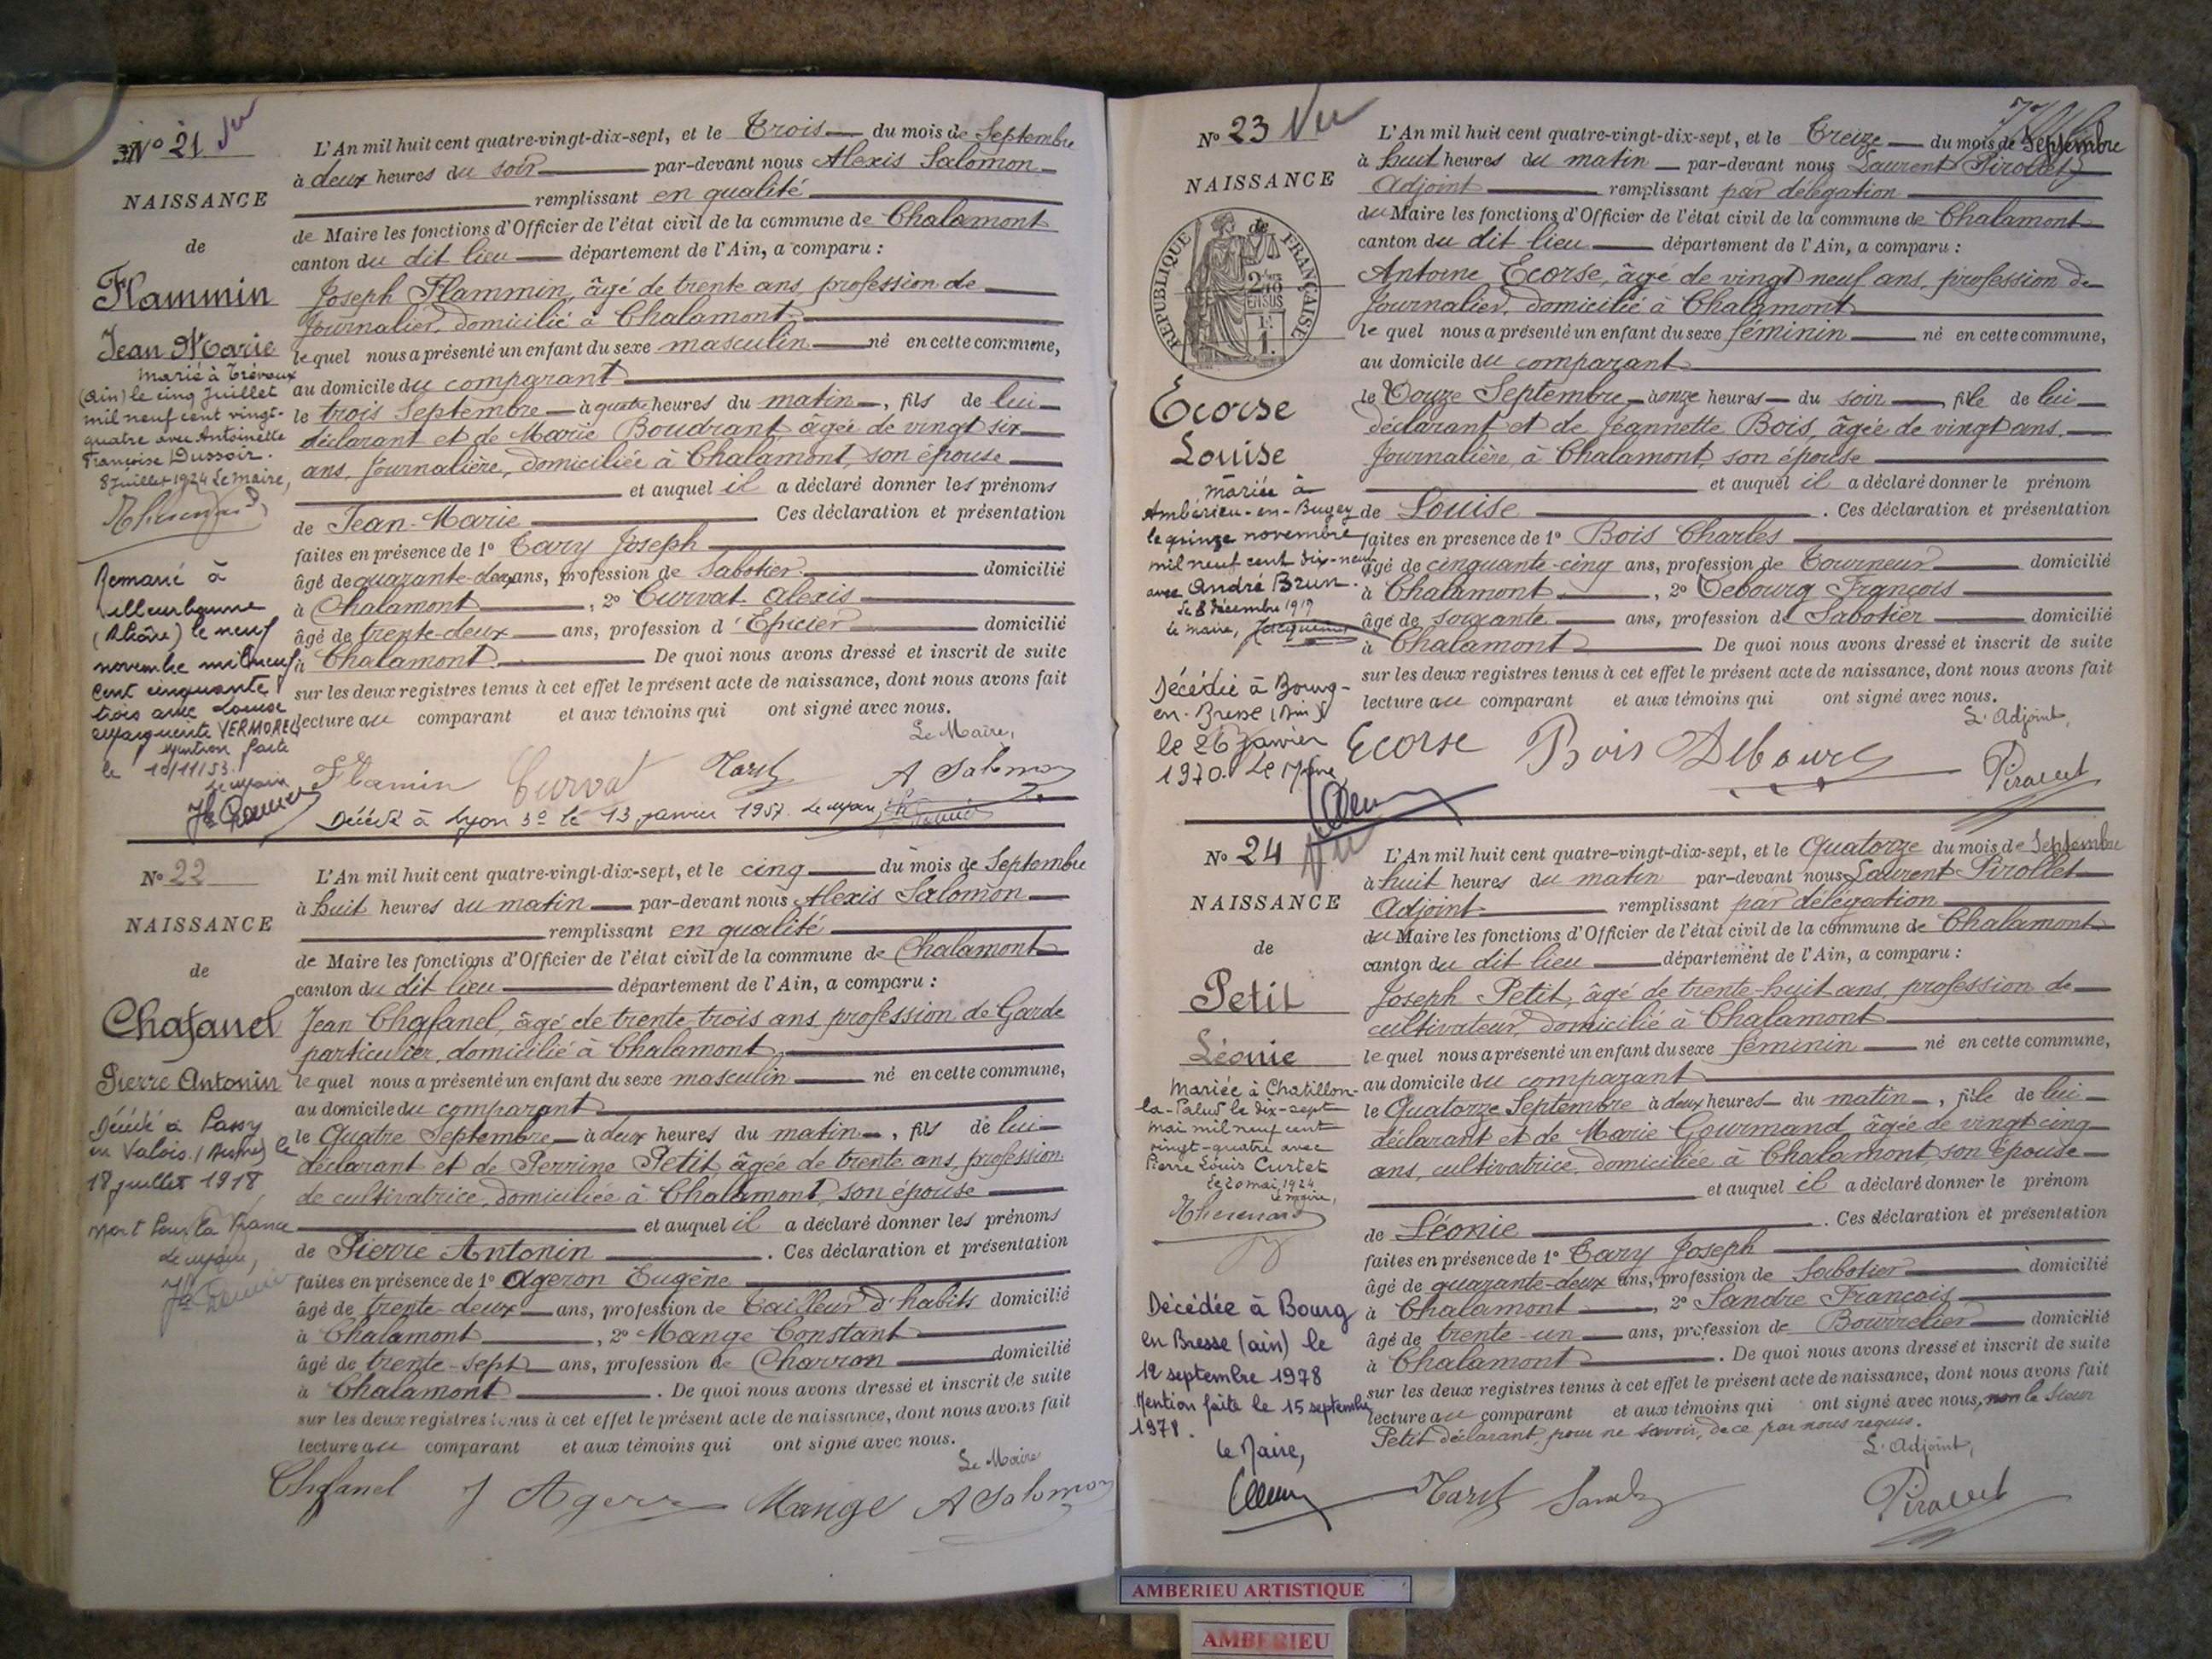 N° 21 Vu
NAISSANCE
de
Flammin
Jean Marie
Marié à Trévoux
(Ain) le cinq Juillet
mil neuf cent vingt-
quatre avec Antoinette
Françoise Dussoir.
8 Juillet 1924 Le Maire,
Remarié à
Villeurbanne
(Rhône) le neuf
novembre mil neuf
cent cinquante
trois avec Louise
Marguerite VERMOREL
Mention faite
le 10/11/53.
Le Maire
L'An mil huit cent quatre-vingt-dix-sept, et le Trois du mois de Septembre
à deux heures du soir par-devant nous Alexis Salomon
remplissant en qualité
de Maire les fonctions d'Officier de l'état civil de la commune de Chalamont
canton du dit lieu département de l'Ain, a comparu :
Joseph Flammin, âgé de trente ans, profession de
Journalier, domicilié à Chalamont
lequel nous a présenté un enfant du sexe masculin né en cette commune,
au domicile du comparant
le trois Septembre à quatre heures du matin, fils de lui
déclarant et de Marie Boudrant âgée de vingt six
ans, Journalière, domiciliée à Chalamont, son épouse
et auquel il a déclaré donner les prénoms
de Jean-Marie Ces déclaration et présentation
faites en présence de 1° Tary Joseph
âgé de quarante-deux ans, profession de Sabotier domicilié
à Chalamont, 2° Curvat Alexis
âgé de trente-deux ans, profession d'Epicier domicilié
à Chalamont. De quoi nous avons dressé et inscrit de suite
sur les deux registres tenus à cet effet le présent acte de naissance, dont nous avons fait
lecture au comparant et aux témoins qui ont signé avec nous.
Le Maire,
Flamin Curvat Tary A Salomon
Décédé à Lyon 3e le 13 janvier 1957. Le Maire,
N° 22
NAISSANCE
de
Chafanel
Pierre Antonin
Décédé à Passy
en Valois (Aisne) le
18 juillet 1918
Mort pour la France
Le Maire,
L'An mil huit cent quatre-vingt-dix-sept, et le cinq du mois de Septembre
à huit heures du matin par-devant nous Alexis Salomon
remplissant en qualité
de Maire les fonctions d'Officier de l'état civil de la commune de Chalamont
canton du dit lieu département de l'Ain, a comparu :
Jean Chafanel, âgé de trente-trois ans profession de Garde
particulier, domicilié à Chalamont
lequel nous a présenté un enfant du sexe masculin né en cette commune,
au domicile du comparant
le Quatre Septembre à deux heures du matin, fils de lui
déclarant et de Perrine Petit, âgée de trente ans, profession
de cultivatrice, domiciliée à Chalamont, son épouse
et auquel il a déclaré donner les prénoms
de Pierre Antonin. Ces déclaration et présentation
faites en présence de 1° Ageron Eugène
âgé de trente-deux ans, profession de Tailleur d'habits domicilié
à Chalamont, 2° Mange Constant
âgé de trente-sept ans, profession de Charron domicilié
à Chalamont. De quoi nous avons dressé et inscrit de suite
sur les deux registres tenus à cet effet le présent acte de naissance, dont nous avons fait
lecture au comparant et aux témoins qui ont signé avec nous.
Le Maire
Chafanel J Ageron Mange A Salomon
N° 23 Vu
NAISSANCE
de
REPUBLIQUE FRANÇAISE
Ecorse
Louise
Mariée à
Ambérieu-en-Bugey
le quinze novembre
mil neuf cent dix-neuf
avec André Brun.
Le 8 décembre 1919
Le Maire,
Décédée à Bourg-
en-Bresse (Ain)
le 26 janvier
1970. Le Maire
L'An mil huit cent quatre-vingt-dix-sept, et le Treize du mois de Septembre
à huit heures du matin par-devant nous Laurent Pirollet
Adjoint remplissant par délégation
du Maire les fonctions d'Officier de l'état civil de la commune de Chalamont
canton du dit lieu département de l'Ain, a comparu :
Antoine Ecorse, âgé de vingt neuf ans, profession de
Journalier, domicilié à Chalamont
lequel nous a présenté un enfant du sexe féminin né en cette commune,
au domicile du comparant
le Douze Septembre à onze heures du soir fille de lui
déclarant et de Jeannette Bois, âgée de vingt ans,
Journalière, à Chalamont, son épouse
et auquel il a déclaré donner le prénom
de Louise. Ces déclaration et présentation
faites en présence de 1° Bois Charles
âgé de cinquante-cinq ans, profession de Tourneur domicilié
à Chalamont, 2° Debourg François
âgé de soixante ans, profession de Sabotier domicilié
à Chalamont De quoi nous avons dressé et inscrit de suite
sur les deux registres tenus à cet effet le présent acte de naissance, dont nous avons fait
lecture au comparant et aux témoins qui ont signé avec nous.
L'Adjoint,
Ecorse Bois Debourg Pirollet
N° 24 Vu
NAISSANCE
de
Petit
Léonie
Mariée à Chatillon-
la-Palud le dix-sept
mai mil neuf cent
vingt-quatre avec
Pierre Louis Curtet
Le 20 mai 1924
Le Maire,
Décédée à Bourg
en Bresse (ain) le
12 septembre 1978
Mention faite le 15 septembre
1978.
Le Maire,
L'An mil huit cent quatre-vingt-dix-sept, et le Quatorze du mois de Septembre
à huit heures du matin par-devant nous Laurent Pirollet
Adjoint remplissant par délégation
du Maire les fonctions d'Officier de l'état civil de la commune de Chalamont
canton du dit lieu département de l'Ain, a comparu :
Joseph Petit, âgé de trente-huit ans, profession de
cultivateur, domicilié à Chalamont
lequel nous a présenté un enfant du sexe féminin né en cette commune,
au domicile du comparant
le Quatorze Septembre à deux heures du matin, fille de lui
déclarant et de Marie Gourmand, âgée de vingt cinq
ans, cultivatrice, domiciliée à Chalamont, son épouse
et auquel il a déclaré donner le prénom
de Léonie. Ces déclaration et présentation
faites en présence de 1° Tary Joseph
âgé de quarante-deux ans, profession de Sabotier domicilié
à Chalamont, 2° Sandre François
âgé de trente-un ans, profession de Bourrelier domicilié
à Chalamont. De quoi nous avons dressé et inscrit de suite
sur les deux registres tenus à cet effet le présent acte de naissance, dont nous avons fait
lecture au comparant et aux témoins qui ont signé avec nous, non le sieur
Petit déclarant, pour ne savoir, de ce par nous requis.
L'Adjoint,
Tary Sandre Pirollet
AMBERIEU ARTISTIQUE
AMBERIEU